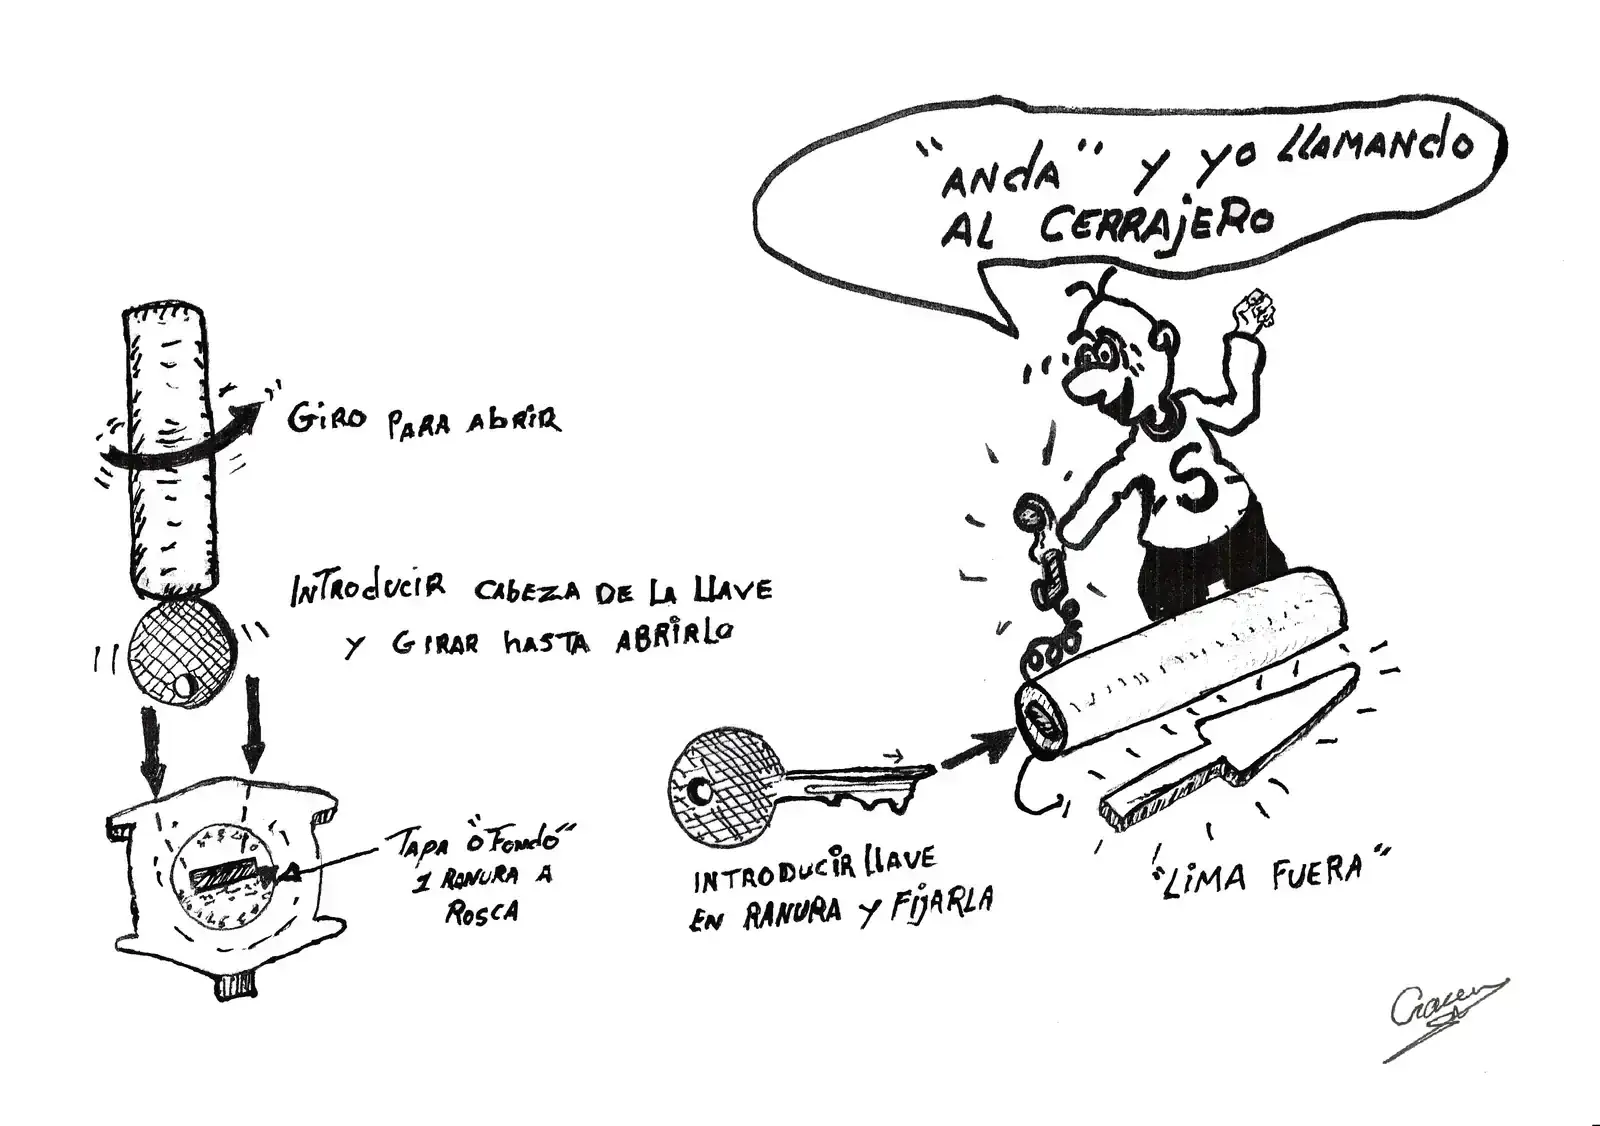 "ANdA" y yo LLAMANdo
AL CERRAjERO
GiRO PARA AbRiR
INTROducIR CABEZA DE LA LLAVE
y GIRAR hASTA ABRiRLo
TAPA "Ó FoNdÓ"
1 RANURA A
ROSCA
INTRODUCiR LLAVE
EN RANURA y FijARLA
"LiMA FUERA"
S